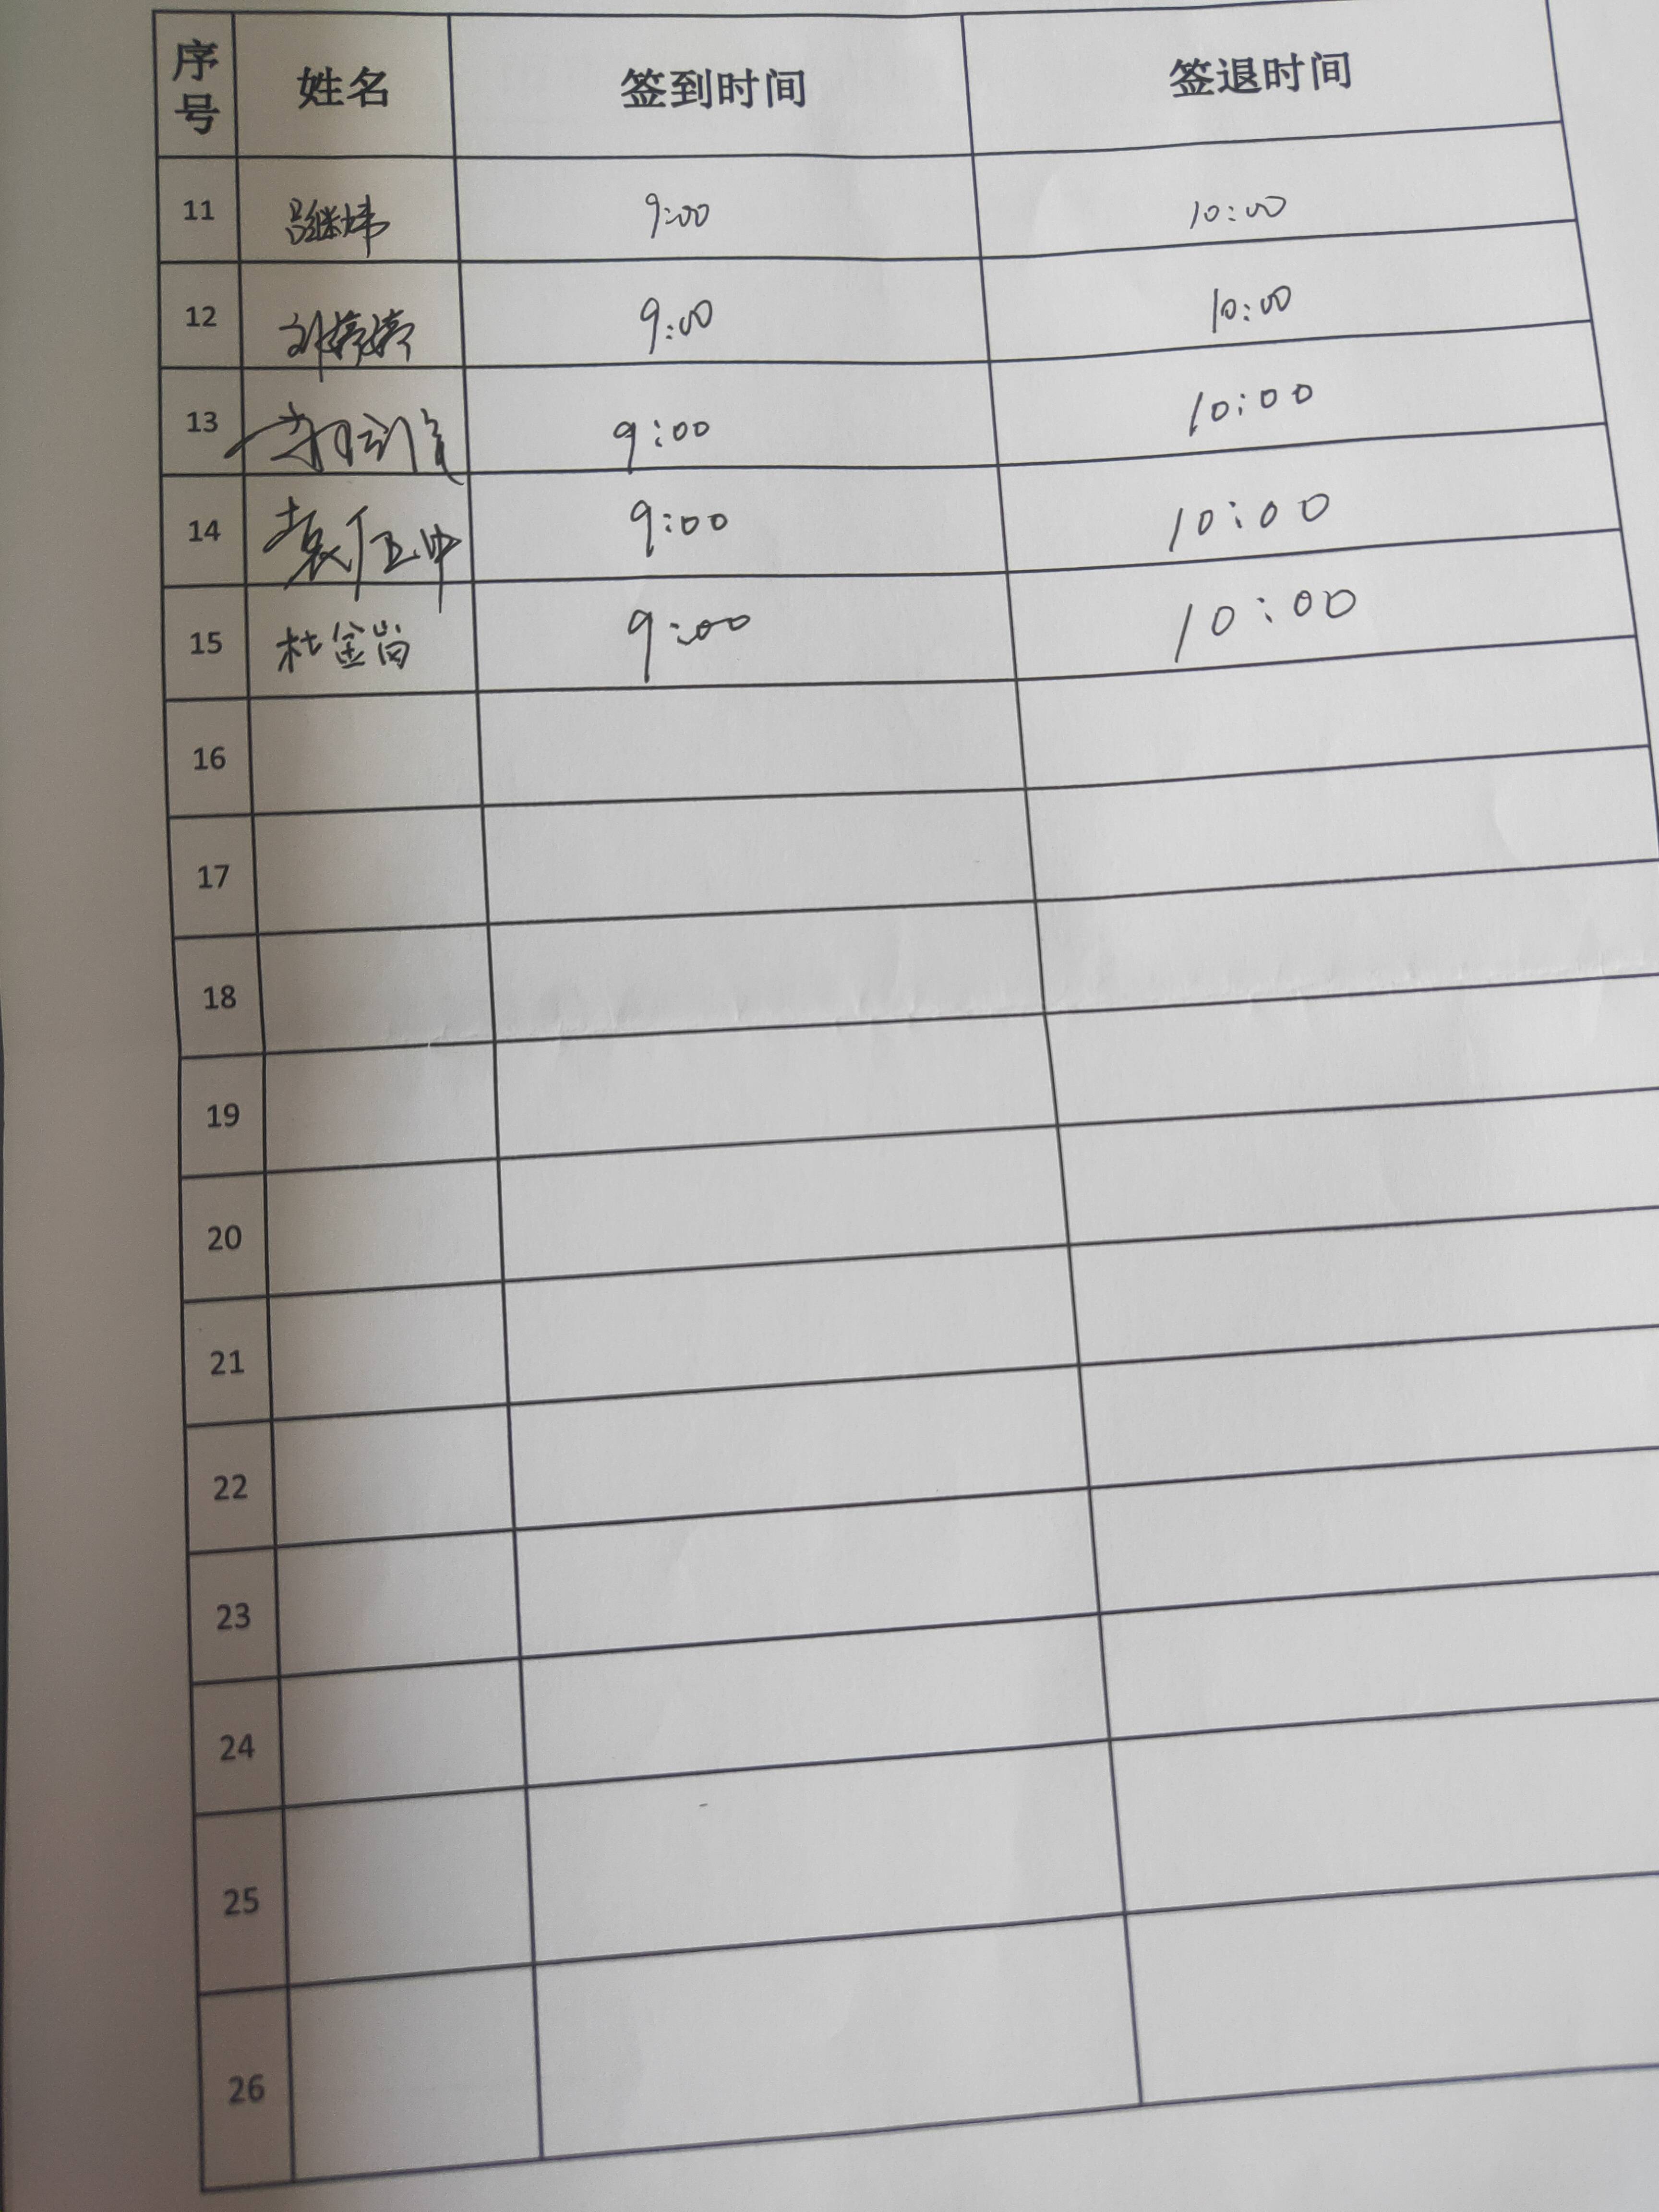 序号 姓名 签到时间 签退时间
11 吕继炜 9:00 10:00
12 刘婷婷 9:00 10:00
13 9:00 10:00
14 袁伍中 9:00 10:00
15 杜金岗 9:00 10:00
16
17
18
19
20
21
22
23
24
25
26